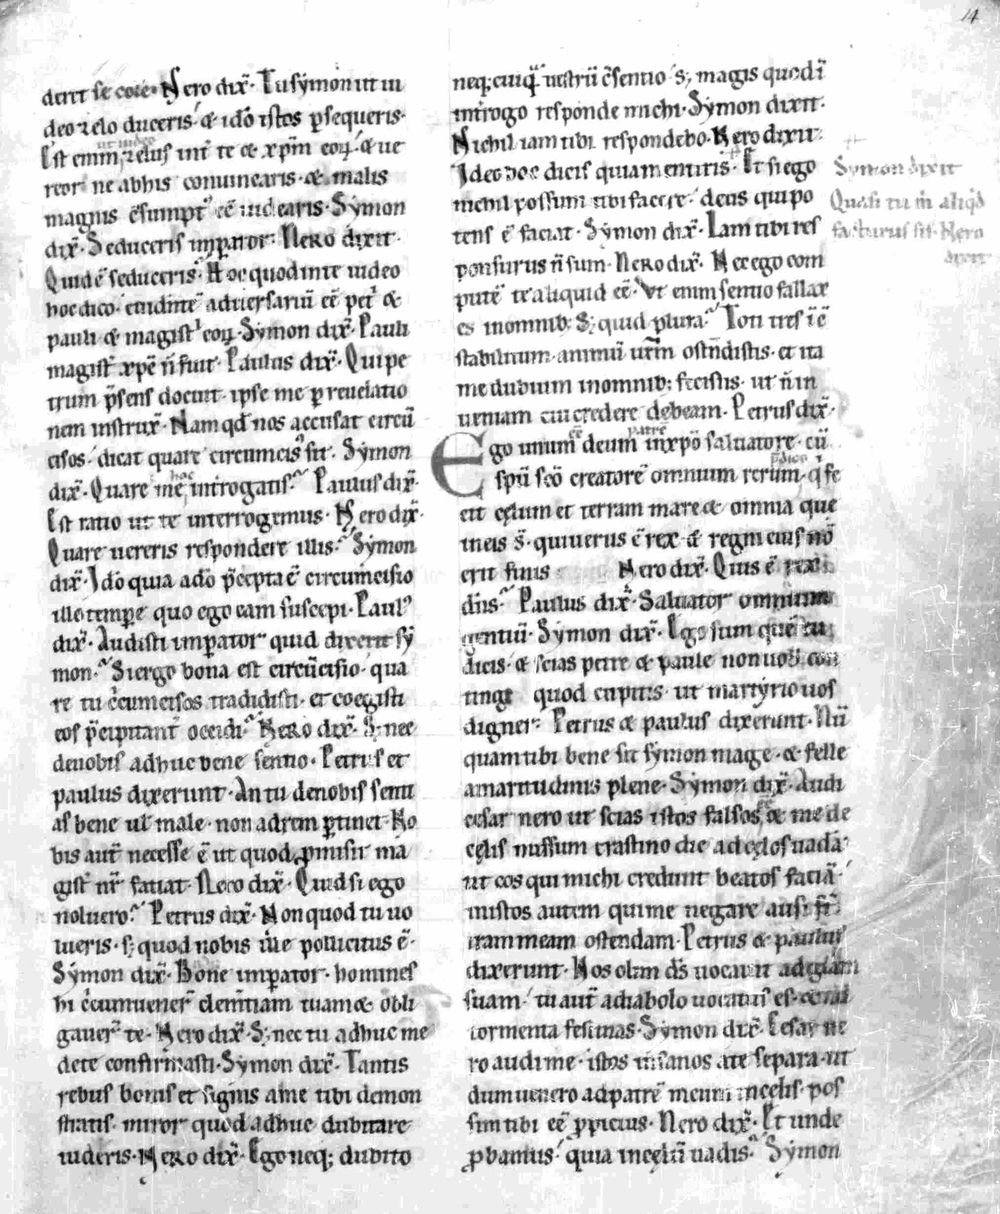 14
derit se coïe. Nero dix̃. Tu sẏmon ut ui
deo zelo duceris. & idõ istos ꝑsequeris.
Est enim zelus int̃ te & xp̃m eoꝝ. & ue
reor ne abhis conuincaris. & malis
magnis c̃sumptꝰ eẽ uidearis. Sẏmon
dix̃. Seduceris imꝑator. Nero dixit.
Quid ẽ seduceris. Hoc quod inte uideo
hoc dico. euidint̃ aduersariũ eẽ petⁱ &
pauli & magistⁱ eoꝝ. Sẏmon dix̃. Pauli
magist̃ xp̃c ñ fuit. Paulus dix̃. Qui pe
trum p̃sens docuit. ipse me ꝑ reuelatio
nem instrux̃. Nam qđ nos accusat circũ
cisos. dicat quare circumcisꝰ sit. Sẏmon
dix̃. Quare me hoc int̃rogatis. Paulus dix̃.
Est ratio ut te interrogemus. Nero dix̃.
Quare uereris respondere illis. Sẏmon
dix̃. Idõ quia adõ p̃cepta ẽ circumcisio
illo tempe quo ego eam suscepi. Paulꝰ
dix̃. Audisti imꝑator quid dixerit sẏ
mon. Si ergo bona est circũcisio. qua
re tu c̃cumcisos tradidisti. et coegisti
eos p̃cipitant̃ occidi. Nero dix̃. S; nec
denobis adhuc bene sentio. Petrus et
paulus dixerunt. An tu denobis senti
as bene uł male. non adrem ꝑtinet. No
bis aut̃ necesse ẽ ut quod ꝓmisit ma
gist̃ nr̃ faciat. Nero dix̃. Quid si ego
noluero. Petrus dix̃. Non quod tu uo
lueris. s; quod nobis ille pollicitus ẽ.
Sẏmon dix̃. Bone imꝑator. homines
hi c̃cumuener̃ clem̃tiam tuam & obli
gauer̃ te. Nero dix̃. S; nec tu adhuc me
dete confirmasti. Sẏmon dix̃. Tantis
rebus bonis et signis ame tibi demon
stratis. miror quod adhuc dubitare
uideris. Nero dix̃. Ego neq; dubito
neq; cuiq̃ ur̃strũ c̃sentio. s; magis quod ĩ
int̃rogo responde michi. Sẏmon dixit.
Nichil iam tibi respondebo. Nero dixit.
Ideo hoc dicis quia mentiris. Et si ego
nichil possum tibi facere. deus qui po
tens ẽ faciat. Sẏmon dix̃. Iam tibi res
ponsurus ñ sum. Nero dix̃. Nec ego com
putẽ te aliquid eẽ. Vt enim sentio fallax
es in omnib; S; quid plura. Toti tres
stabilitum animũ ur̃m ostñdistis. et ita
me dubium inomnib; fecistis. ut ñ in
ueniam cui credere debeam. Petrus dix̃.
Ego unum deum patrẽ inxpõ saluatore. cũ
spũ scõ creatorẽ omnium rerum. q̃ fe
cit cęlum et terram mare & omnia que
ineis s̃. qui uerus ẽ rex. & regni eius nõ
erit finis Nero dix̃. Quis ẽ rex
dñs. Paulus dix̃. Saluator omnium
gentiũ. Sẏmon dix̃. Ego sum quẽ tu
dicis. & scias petre & paule non uob̃ con
tinge quod cupitis. ut martẏrio uos
digner. Petrus & paulus dixerunt. Nũ
quam tibi bene sit sẏmon mage. & felle
amaritudinis plene. Sẏmon dix̃. Audi
cesar nero ut scias istos falsos & me de
cęlis missum crastino die adcęlos uadã.
ut eos qui michi credunt beatos faciã.
inistos autem qui me negare ausi
iram meam ostendam. Petrus & paulus
dixerunt. Nos olim dš uocauit adgłam
suam. tu aut̃ adiabolo uocatus es.
tormenta festinas. Sẏmon dix̃. Cesar ne
ro audi me. istos insanos ate separa. ut
dum uenero adpatrẽ meum incęlis. pos
sim tibi eẽ ꝓpicius. Nero dix̃. Et unde
ꝓbamus. quia incęlũ uadis. Sẏmon
Sẏmon dixit
Quasi tu m̃ aliqđ
facturus sis. Nero
dixit